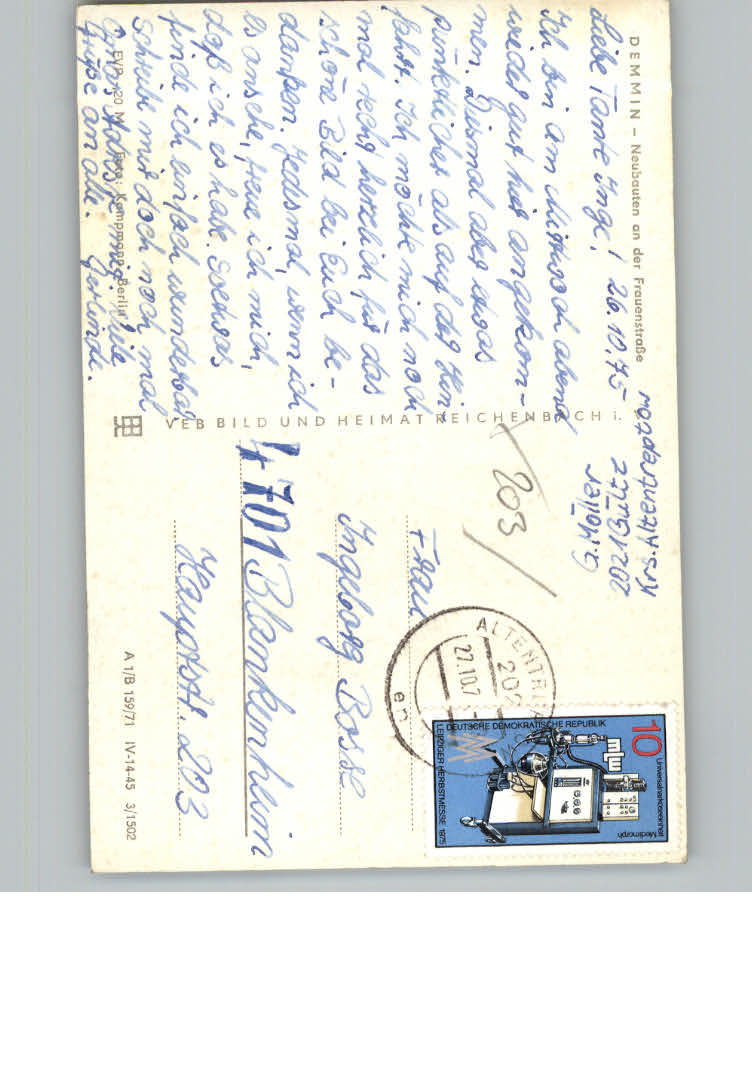 DEMMIN – Neubauten an der Frauenstraße
Liebe Tante Inge! 26.10.75
Ich bin am Mittwoch abend
wieder gut hier angekom-
men. Diesmal aber etwas
pünktlicher als auf der Hin
fahrt. Ich möchte mich noch
mal recht herzlich für das
schöne Bild bei Euch be-
danken. Jedesmal, wenn ich
es ansehe, freue ich mich,
daß ich es habe.
finde ich einfach wunderbar
Schreibt mir doch noch mal
Viele
Grüße an alle. Gerlinde.
EVP -,20 M Foto: Kampmann, Berlin
VEB BILD UND HEIMAT REICHENBACH i.
G. Müller
2771 1202
Krs. Altentreptow
203
Frau
Ingeborg Bosse
4701 Blankenheim
Hauptstr. 203
A 1/B 159/71 IV-14-45 3/1502
ALTENTRE
202
27.10.7
en
10
DEUTSCHE DEMOKRATISCHE REPUBLIK
LEIPZIGER HERBSTMESSE 1975
MM
mlw
Medimorph